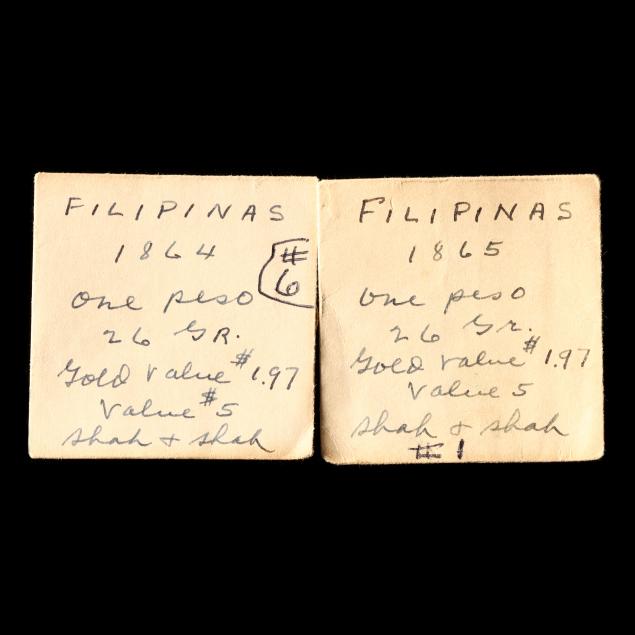 FILIPINAS
1864
#
6
One peso
26 GR.
Gold Value $1.97
Value $5
Shah + Shah
FILIPINAS
1865
One peso
26 Gr.
Gold Value $1.97
Value 5
Shah + Shah
# 1